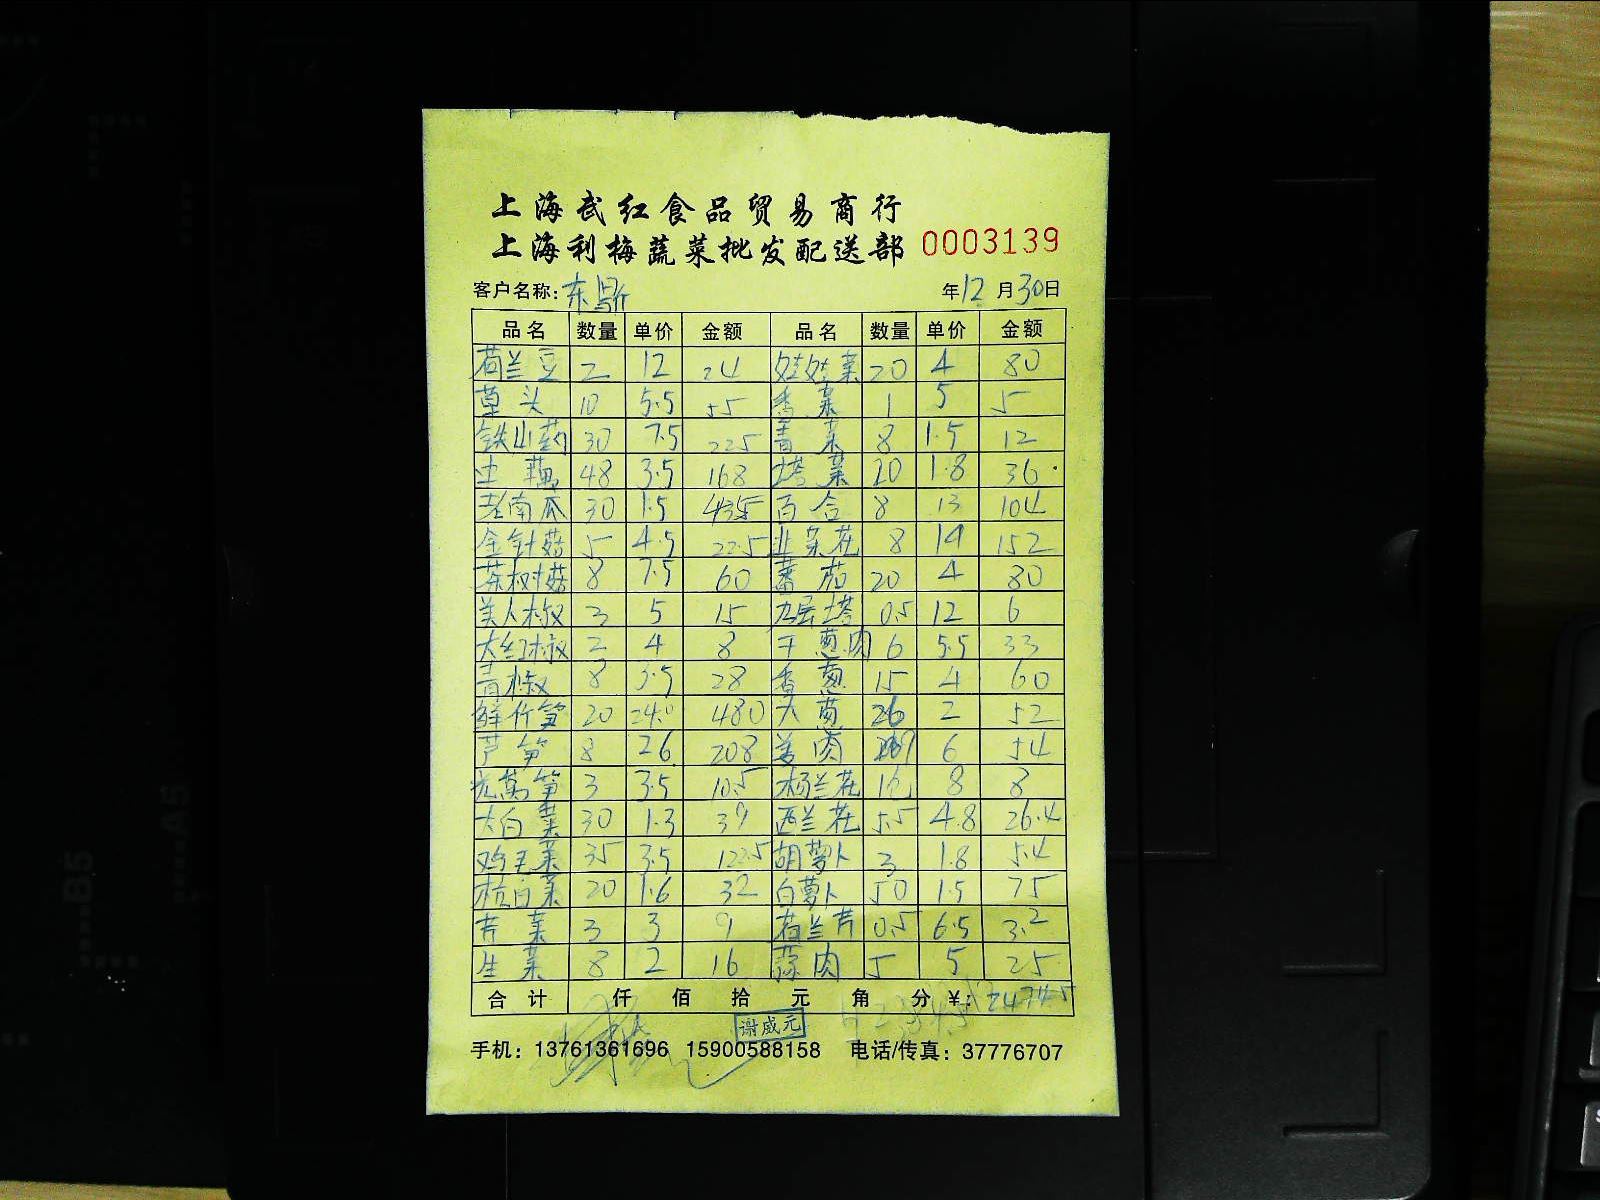 上海武红食品贸易商行
上海利梅蔬菜批发配送部 0003139
客户名称: 东 年12月30日
品名 数量 单价 金额 品名 数量 单价 金额
荷兰豆 2 12 24 娃娃菜 20 4 80
草头 10 5.5 55 香菜 1 5 5
铁山药 30 7.5 225 青菜 8 1.5 12
土藕 48 3.5 168 塔菜 20 1.8 36
老南瓜 30 1.5 百合 8 13 104
金针菇 5 4.5 22.5 韭菜花 8 14 152
茶树菇 8 7.5 60 蕃茄 20 4 80
美人椒 3 5 15 九层塔 0.5 12 6
大红椒 2 4 8 干葱肉 6 5.5 33
青椒 8 3.5 28 香葱 15 4 60
鲜竹笋 20 24.0 480 大葱 26 2 52
芦笋 8 26 208 姜肉 6 54
光莴笋 3 3.5 10.5 杨兰花 8 8
大白菜 30 1.3 39 西兰花 5.5 4.8 26.4
鸡毛菜 35 3.5 122.5 胡萝卜 3 1.8 5.4
杭白菜 20 1.6 32 白萝卜 50 1.5 75
芹菜 3 3 9 荷兰芹 0.5 6.5 3.2
生菜 8 2 16 蒜肉 5 5 25
合计 仟 佰 拾 元 角 分 ¥: 2474.5
谢威元
手机: 13761361696 15900588158 电话/传真: 37776707
B5
A5